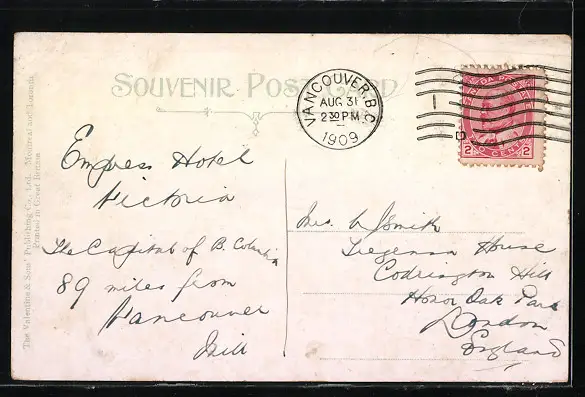 SOUVENIR POST CARD
VANCOUVER, B.C.
AUG 31
2 30 PM
1909
CANADA POSTAGE
2 CENTS 2
Empress Hotel
Victoria
The Capital of B. Columbia
89 miles from
Vancouver
Will
Mrs. W Smith
House
Codrington Hill
Honor Oak Park
London
England
The Valentine & Sons' Publishing Co., Ltd., Montreal and Toronto
Printed in Great Britain